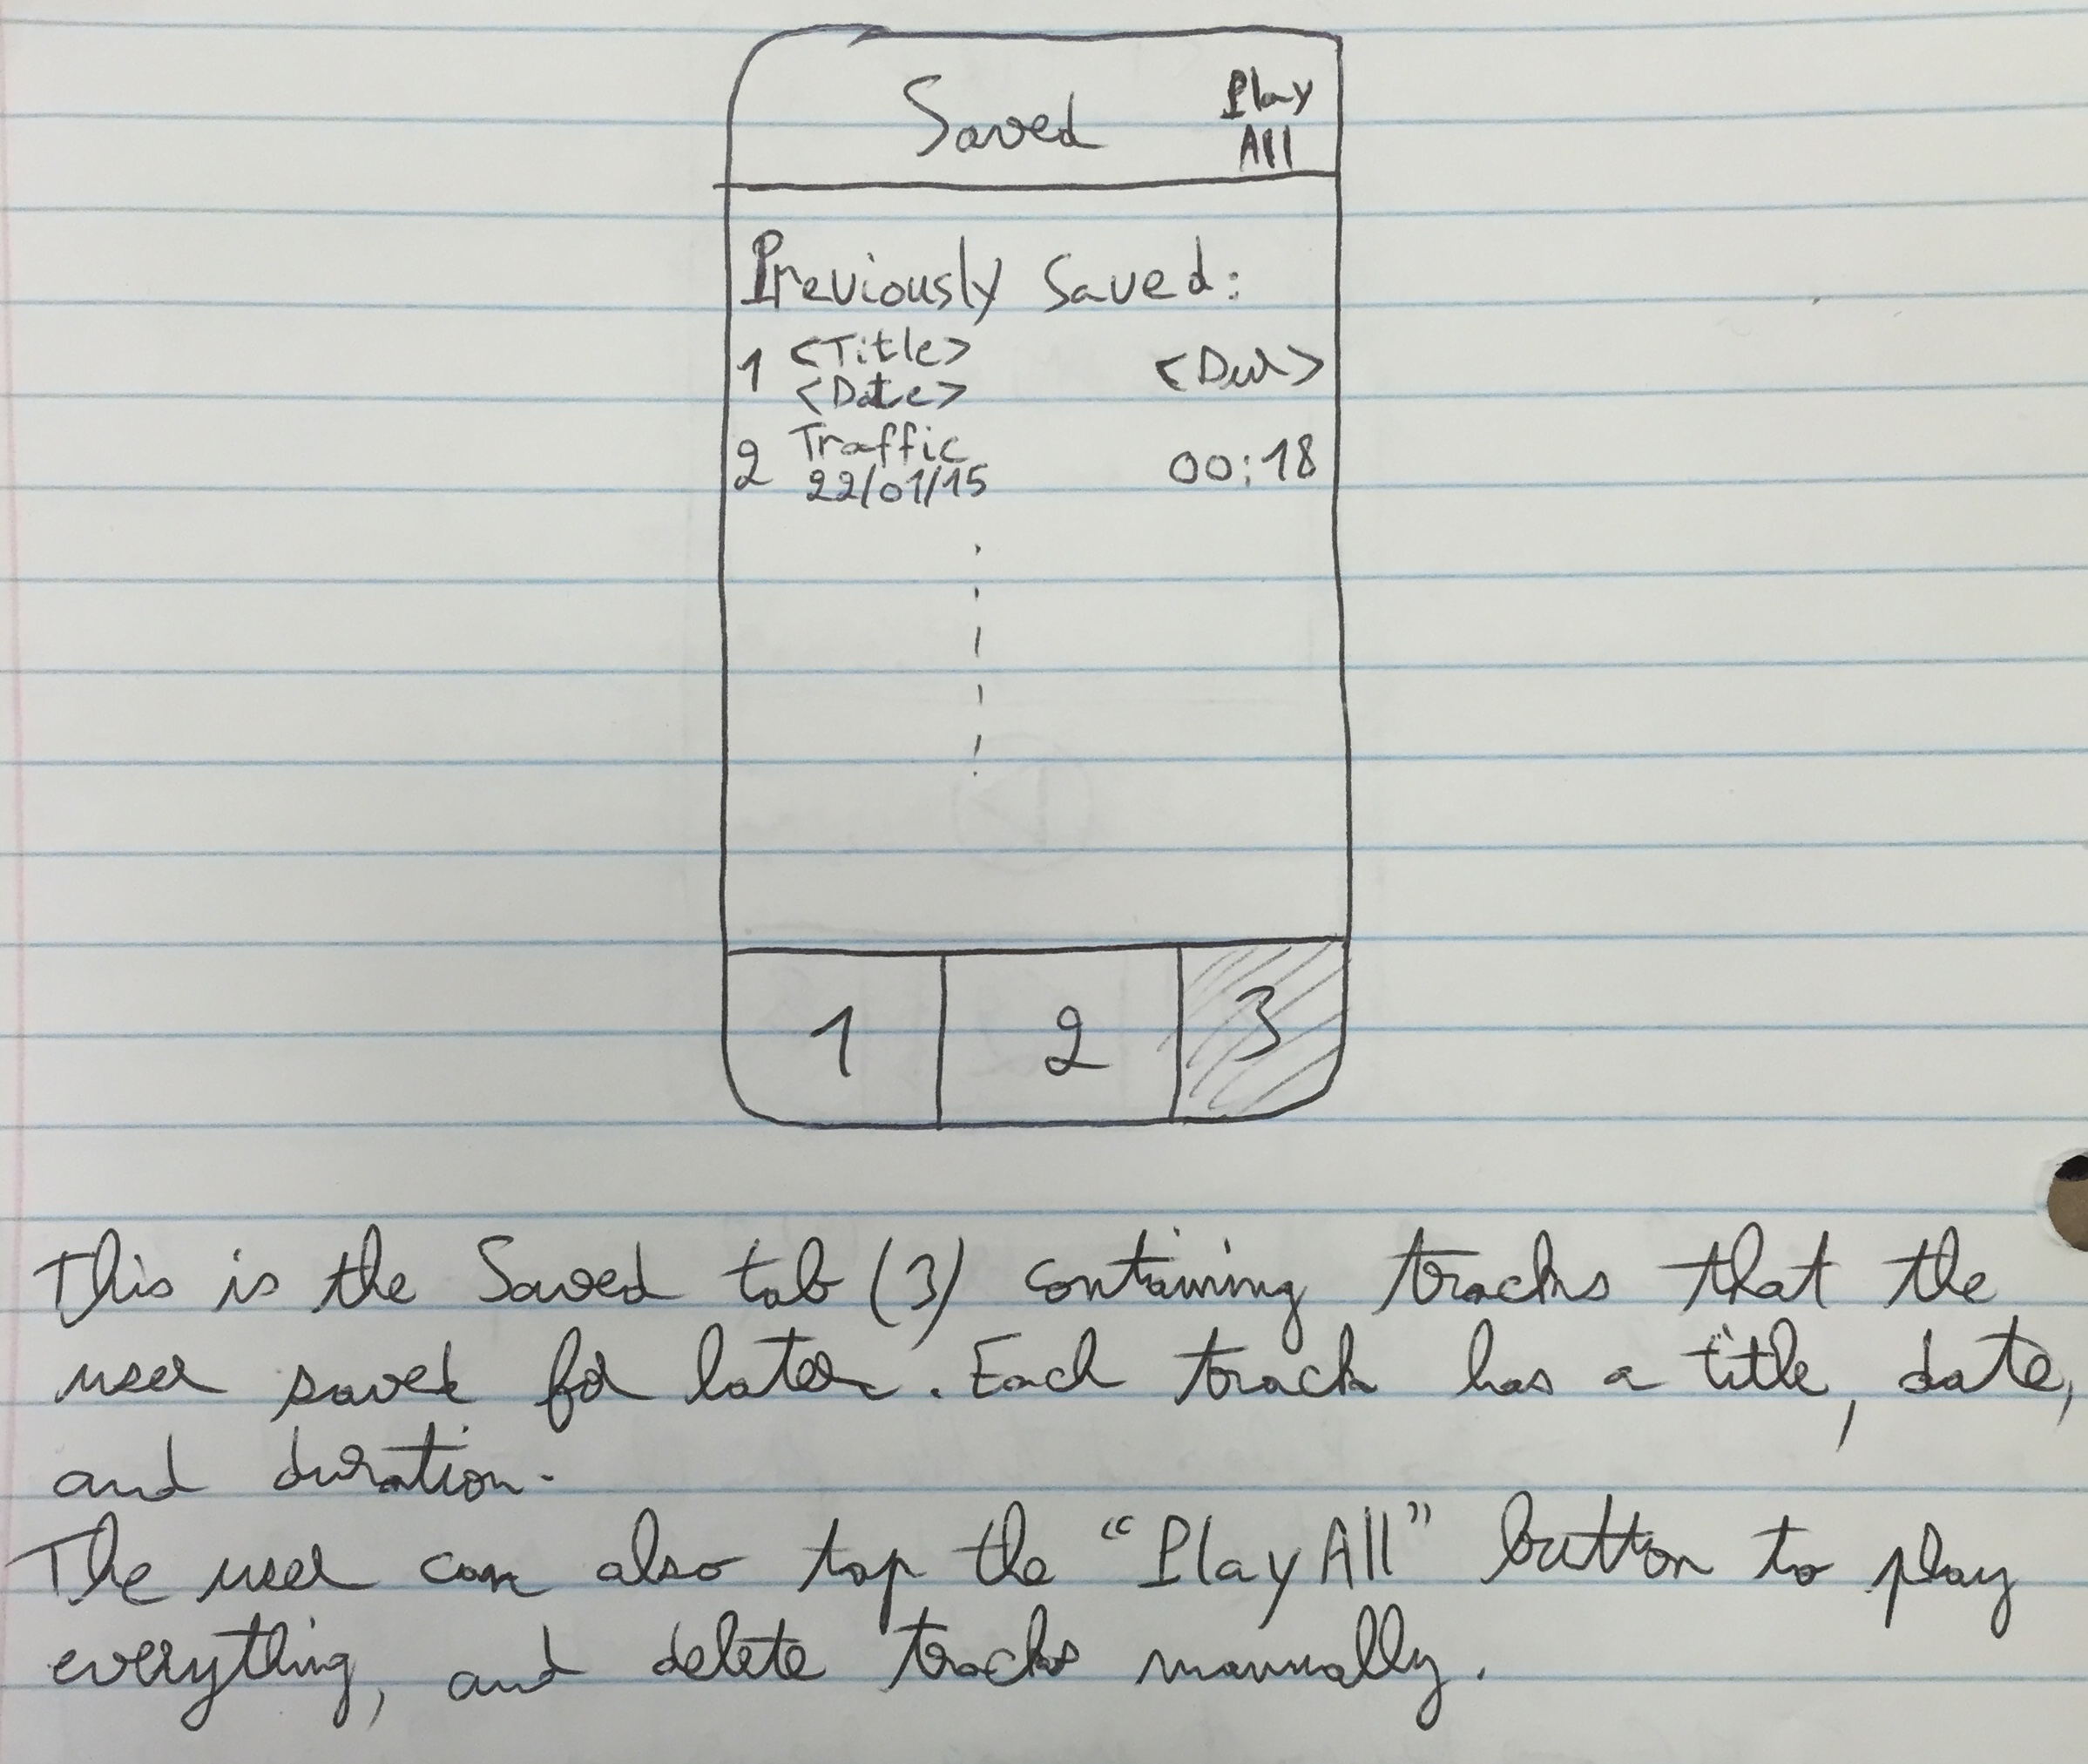 Saved
Play
All
Previously Saved:
1 <Title> <Dur>
<Date>
2 Traffic 00:18
22/01/15
1 2 3
This is the Saved tab (3) containing tracks that the
user saved for later. Each track has a title, date,
and duration.
The user can also tap the “Play All” button to play
everything, and delete tracks manually.